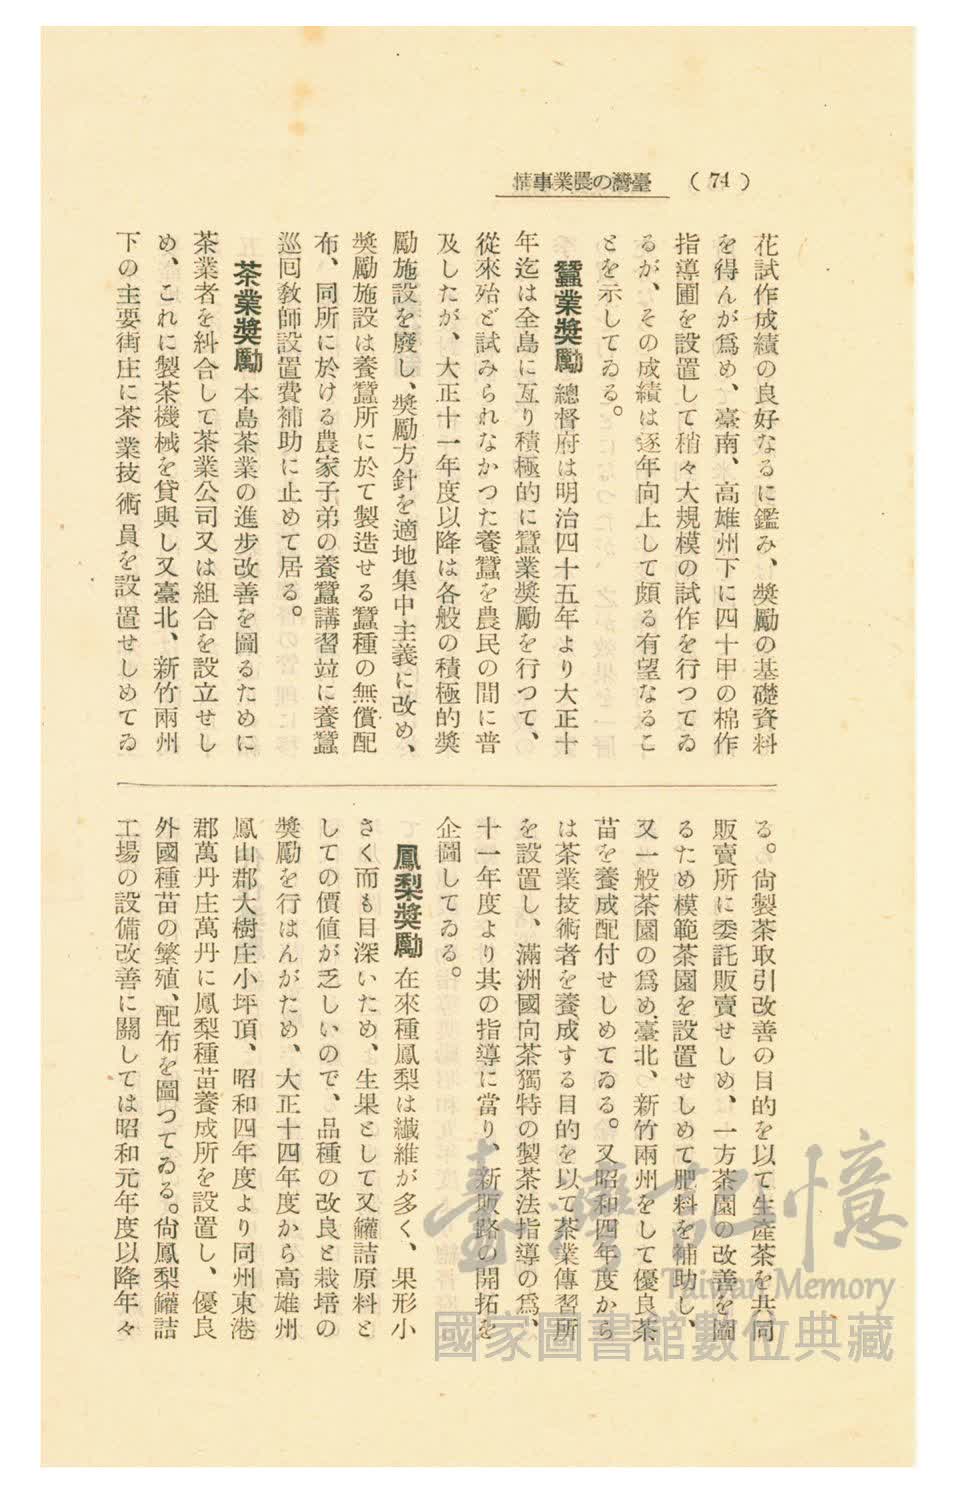 (74)
臺灣の農業事情
花試作成績の良好なるに鑑み、奬勵の基礎資料
を得んが爲め、臺南、高雄州下に四十甲の棉作
指導圃を設置して稍々大規模の試作を行つてゐ
るが、その成績は逐年向上して頗る有望なるこ
とを示してゐる。
蠶業奬勵 總督府は明治四十五年より大正十
年迄は全島に亙り積極的に蠶業奬勵を行つて、
從來殆ど試みられなかつた養蠶を農民の間に普
及したが、大正十一年度以降は各般の積極的奬
勵施設を廢し、奬勵方針を適地集中主義に改め、
奬勵施設は養蠶所に於て製造せる蠶種の無償配
布、同所に於ける農家子弟の養蠶講習竝に養蠶
巡回敎師設置費補助に止めて居る。
茶業奬勵 本島茶業の進步改善を圖るために
茶業者を糾合して茶業公司又は組合を設立せし
め、これに製茶機械を貸與し又臺北、新竹兩州
下の主要街庄に茶業技術員を設置せしめてゐ
る。尙製茶取引改善の目的を以て生產茶を共同
販賣所に委託販賣せしめ、一方茶園の改善を圖
るため模範茶園を設置せしめて肥料を補助し、
又一般茶園の爲め臺北、新竹兩州をして優良茶
苗を養成配付せしめてゐる。又昭和四年度から
は茶業技術者を養成する目的を以て茶業傳習所
を設置し、滿洲國向茶獨特の製茶法指導の爲、
十一年度より其の指導に當り、新販路の開拓を
企圖してゐる。
鳳梨奬勵 在來種鳳梨は纎維が多く、果形小
さく而も目深いため、生果として又罐詰原料と
しての價値が乏しいので、品種の改良と栽培の
奬勵を行はんがため、大正十四年度から高雄州
鳳山郡大樹庄小坪頂、昭和四年度より同州東港
郡萬丹庄萬丹に鳳梨種苗養成所を設置し、優良
外國種苗の繁殖、配布を圖つてゐる。尙鳳梨罐詰
工場の設備改善に關しては昭和元年度以降年々
臺灣記憶
Taiwan Memory
國家圖書館數位典藏